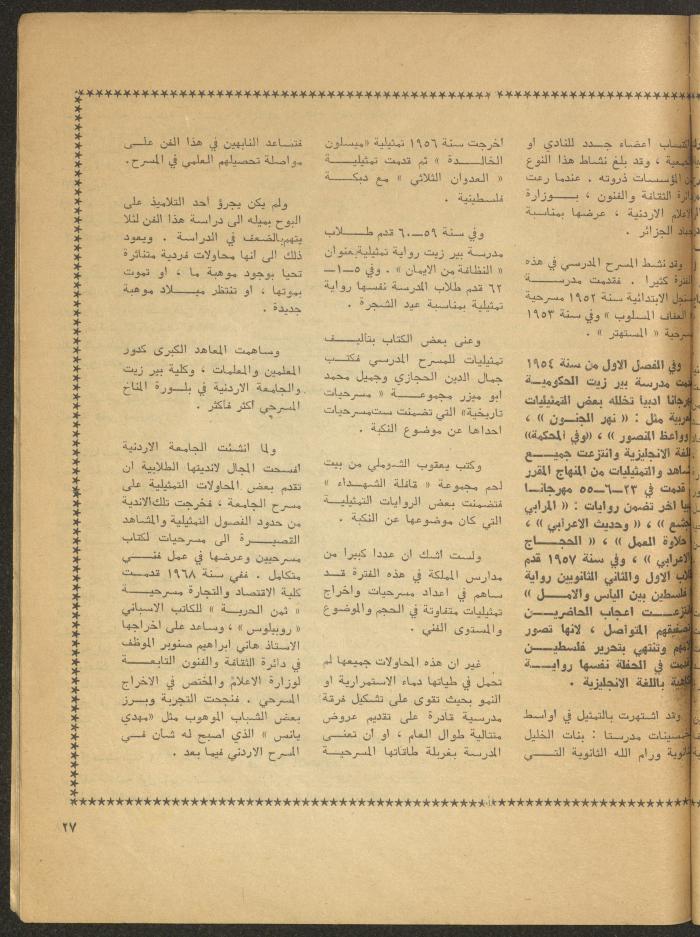 اعضاء جدد للنادي او
، وقد بلغ نشاط هذا النوع
المؤسسات ذروته . عندما رعت
الثقافة والفنون ، بوزارة
الاردنية ، عرضها بمناسبة
الجزائر .
وقد نشط المسرح المدرسي في هذه
كثيرا . فقدمت مدرسة
الابتدائية سنة ١٩٥٢ مسرحية
العفاف المسلوب » وفي سنة ١٩٥٣
« المستهتر » .
وفي الفصل الاول من سنة ١٩٥٤
مدرسة بير زيت الحكومية
ادبيا تخلله بعض التمثيليات
مثل : « نهر الجنون » ،
وواعظ المنصور » ، «وفي المحكمة»
الانجليزية وانتزعت جميع
والتمثيليات من المنهاج المقرر
قدمت في ٢٣–٦–٥٥ مهرجانا
اخر تضمن روايات : « المرابي
» ، « وحديث الاعرابي » ،
حلاوة العمل » ، « الحجاج
» ، وفي سنة ١٩٥٧ قدم
الاول والثاني الثانويين رواية
فلسطين بين اليأس والامل »
اعجاب الحاضرين
المتواصل ، لانها تصور
وتنتهي بتحرير فلسطين
في الحفلة نفسها رواية
باللغة الانجليزية .
وقد اشتهرت بالتمثيل في اواسط
مدرستا : بنات الخليل
ورام الله الثانوية التي
اخرجت سنة ١٩٥٦ تمثيلية «ميسلون
الخالدة » ثم قدمت تمثيلية
« العدوان الثلاثي » مع دبكة
فلسطينية .
وفي سنة ٥٩–٦٠ قدم طلاب
مدرسة بير زيت رواية تمثيلية بعنوان
« النظافة من الايمان » . وفي ٥–١–
٦٢ قدم طلاب المدرسة نفسها رواية
تمثيلية بمناسبة عيد الشجرة .
وعنى بعض الكتاب بتأليف
تمثيليات للمسرح المدرسي فكتب
جمال الدين الحجازي وجميل محمد
ابو ميزر مجموعة « مسرحيات
تاريخية» التي تضمنت ست مسرحيات
احداها عن موضوع النكبة .
وكتب يعقوب الشوملي من بيت
لحم مجموعة « قافلة الشهداء »
فتضمنت بعض الروايات التمثيلية
التي كان موضوعها عن النكبة .
ولست اشك ان عددا كبيرا من
مدارس المملكة في هذه الفترة قد
ساهم في اعداد مسرحيات واخراج
تمثيليات متفاوتة في الحجم والموضوع
والمستوى الفني .
غير ان هذه المحاولات جميعها لم
تحمل في طياتها دماء الاستمرارية او
النمو بحيث تقوى على تشكيل فرقة
مدرسية قادرة على تقديم عروض
متتالية طوال العام ، او ان تعنى
المدرسة بغربلة طاقاتها المسرحية
فتساعد النابهين في هذا الفن على
مواصلة تحصيلهم العلمي في المسرح.
ولم يكن يجرؤ أحد التلاميذ على
البوح بميله الى دراسة هذا الفن لئلا
يتهم بالضعف في الدراسة . ويعود
ذلك الى انها محاولات فردية متناثرة
تحيا بوجود موهبة ما ، او تموت
بموتها ، او تنتظر ميلاد موهبة
جديدة .
وساهمت المعاهد الكبرى كدور
المعلمين والمعلمات ، وكلية بير زيت
والجامعة الاردنية في بلورة المناخ
المسرحي اكثر فأكثر .
ولما انشئت الجامعة الاردنية
افسحت المجال لانديتها الطلابية ان
تقدم بعض المحاولات التمثيلية على
مسرح الجامعة ، فخرجت تلك الاندية
من حدود الفصول التمثيلية والمشاهد
القصيرة الى مسرحيات لكتاب
مسرحيين وعرضها في عمل فني
متكامل . ففي سنة ١٩٦٨ قدمت
كلية الاقتصاد والتجارة مسرحية
« ثمن الحرية » للكاتب الاسباني
« روبيلوس » ، وساعد على اخراجها
الاستاذ هاني ابراهيم صنوبر الموظف
في دائرة الثقافة والفنون التابعة
لوزارة الاعلام والمختص في الاخراج
المسرحي . فنجحت التجربة وبرز
بعض الشباب الموهوب مثل «مهدي
يانس » الذي اصبح له شأن في
المسرح الاردني فيما بعد .
٢٧